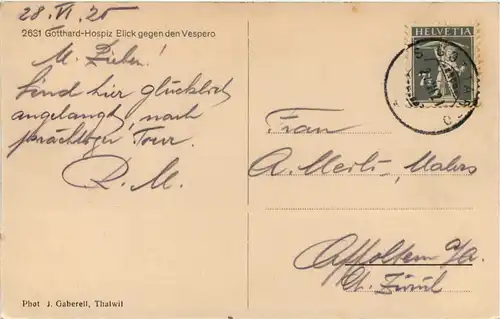 28. VI. 25
2631 Gotthard-Hospiz Blick gegen den Vespero
M. Lieben!
Sind hier glücklich
angelangt, nach
prächtiger Tour.
R. M.
HELVETIA
7½
Frau
A. Merli, Malers
Affoltern a/A.
Kt. Zürich
Phot J. Gaberell, Thalwil